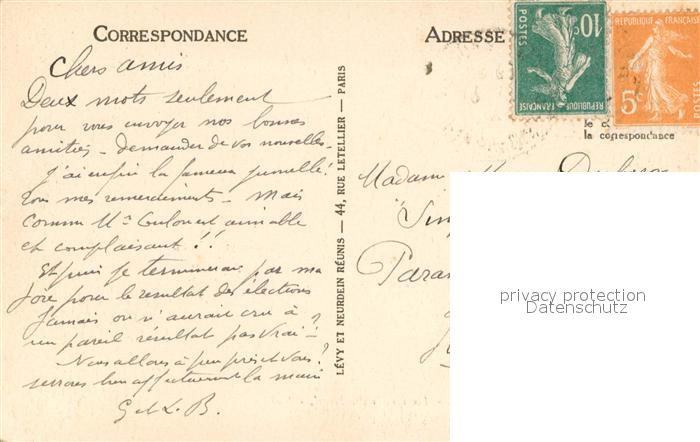 CORRESPONDANCE
ADRESSE
10c POSTES RÉPUBLIQUE FRANÇAISE
RÉPUBLIQUE FRANÇAISE 5c POSTES
la correspondance
Chers amis
Deux mots seulement
pour vous envoyer nos bonnes
amitiés - demander de vos nouvelles -
j'ai enfin la fameuse jumelle!
tous mes remerciements - Mais
comme Mr est aimable
et complaisant!!
Et puis je terminerai par ma
joie pour le résultat des élections
Jamais on n'aurait cru à
un pareil résultat pas vrai -!
Nous allons à peu près et vous?
serrons bien affectueusement la main
G et L. B.
LÉVY ET NEURDEIN RÉUNIS — 44, RUE LETELLIER — PARIS
Madame
privacy protection
Datenschutz